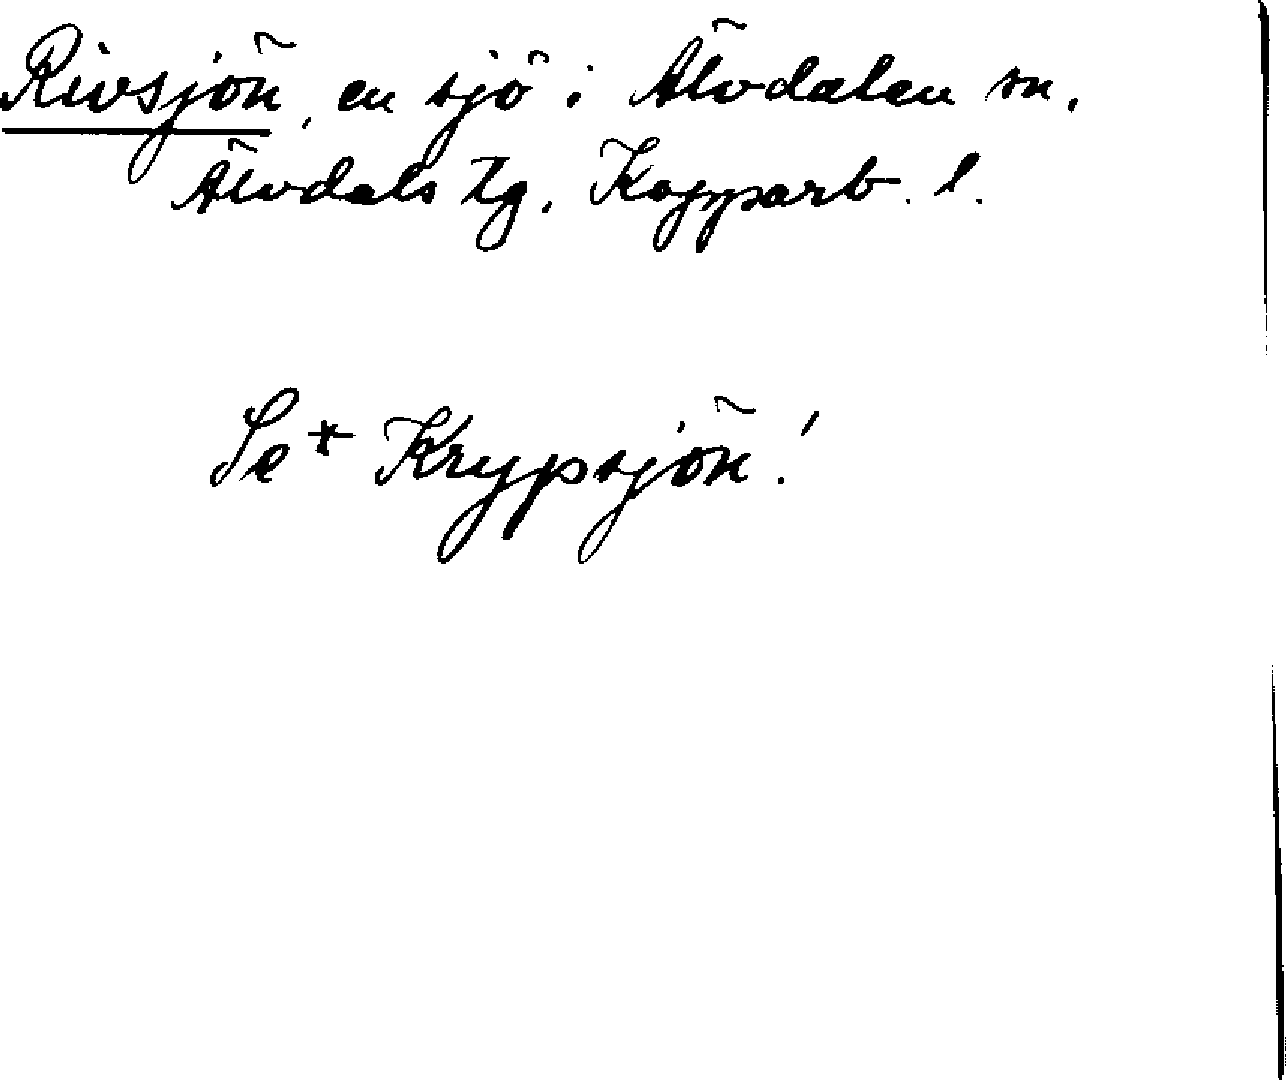 Rivsjön, en sjö i Älvdalen sn,
Älvdals tg, Kopparb. l.
Se * Krypsjön!